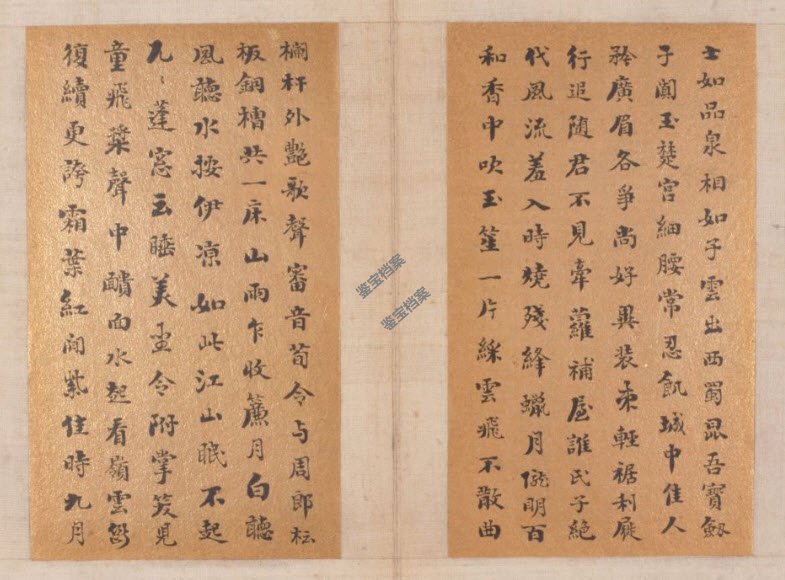 士如品泉相如子雲出西蜀昆吾寶劔
子闐玉楚宮細腰常忍飢城中佳人
矜廣眉各爭尚好異裝束輕裾利屣
行追随君不見牽蘿補屋誰氏子絶
代風流羞入時燒殘絳蠟月隴明百
和香中吹玉笙一片綵雲飛不散曲
欄杆外艷歌聲審音荀令与周郎檀
板銅槽共一床山雨乍收簾月白聽
風聽水按伊凉如此江山眠不起
九〻蓬窓正睡美重令附掌笑見
童飛槳聲中醻面水起看嶺雲斷
復續更誇霜葉紅間紫佳時九月
鉴宝档案
鉴宝档案